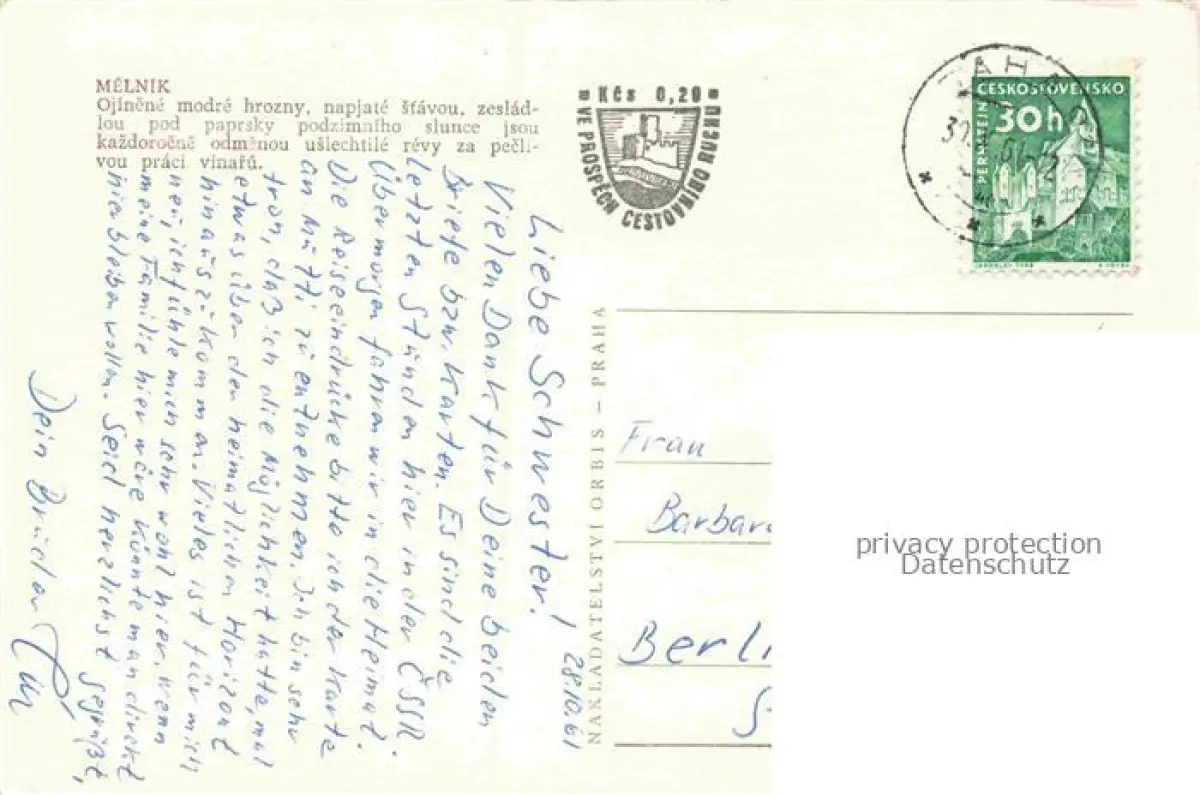 MĚLNÍK
Ojíněné modré hrozny, napjaté šťávou, zeslád-
lou pod paprsky podzimního slunce jsou
každoročně odměnou ušlechtilé révy za pečli-
vou práci vinařů.
Kčs 0,20
VE PROSPĚCH CESTOVNÍHO RUCHU
ČESKOSLOVENSKO
30h
PERNŠTEJN
Liebe Schwester!
28.10.61
Vielen Dank für Deine beiden
Briefe bzw. Karten. Es sind die
letzten Stunden hier in der ČSSR.
Übermorgen fahren wir in die Heimat.
Die Reiseeindrücke bitte ich der Karte
an Mutti zu entnehmen. Ich bin sehr
froh, daß ich die Möglichkeit hatte, mal
etwas über den heimatlichen Horizont
hinauszukommen. Vieles ist für mich
neu, ich fühle mich sehr wohl hier. Wenn
meine Familie hier wäre könnte man direkt
hierbleiben wollen. Seid herzlichst gegrüßt,
Dein Bruder
NAKLADATELSTVÍ ORBIS – PRAHA
Frau
Barbara
Berli
privacy protection
Datenschutz